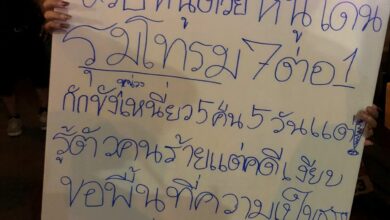 หนูด้วย หนูโดน
รุมโทรม 7 ต่อ 1
กักขังหน่วง
เหนี่ยว 5 คืน 5 วัน แต่
รู้ตัวคนร้ายแต่คดีเงียบ
ขอพื้นที่ความเป็น